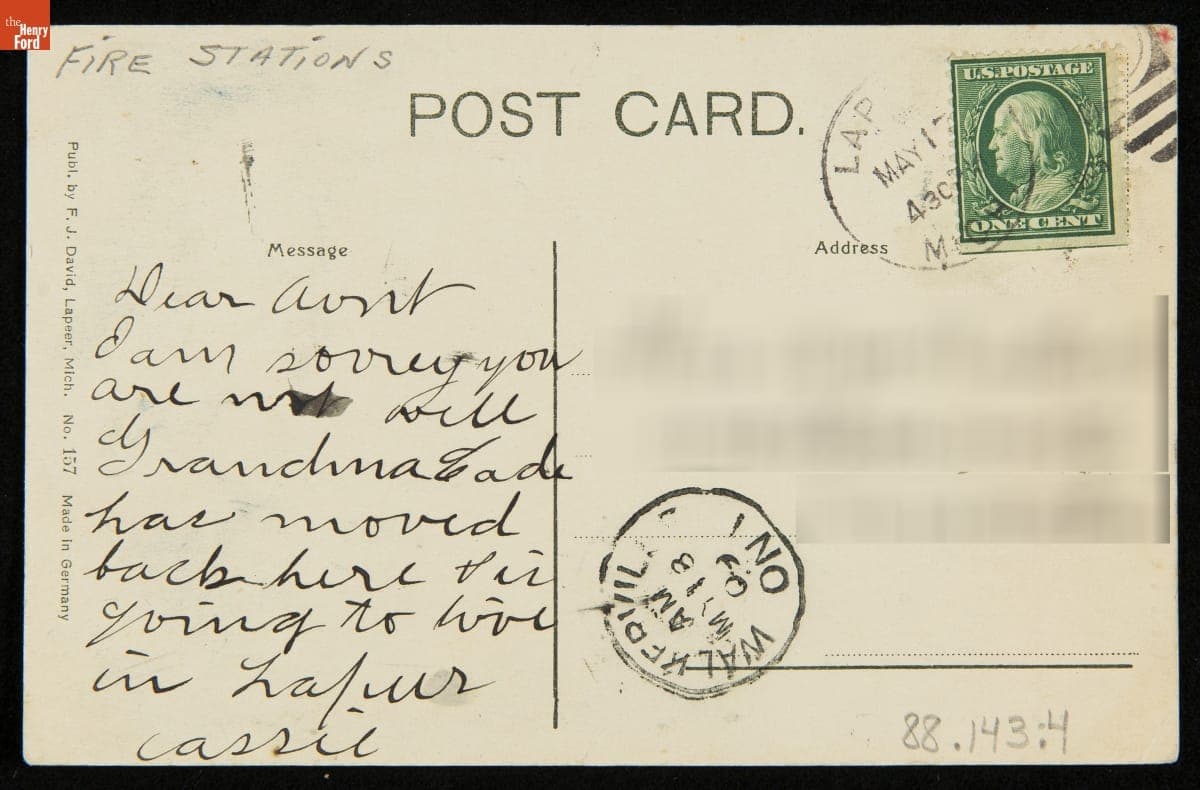 the
Henry
Ford
FIRE STATIONS
POST CARD.
U.S. POSTAGE
ONE CENT
LAP
MAY 17
430P
MICH
Publ. by F. J. David, Lapeer, Mich. No. 157 Made in Germany
Message
Address
Dear Aunt
I am sorrey you
are not well
Grandma
has moved
back here & is
going to live
in Lapeer
Cassie
WALKERVILLE
ONT
AM
MY 18
09
88.143:4